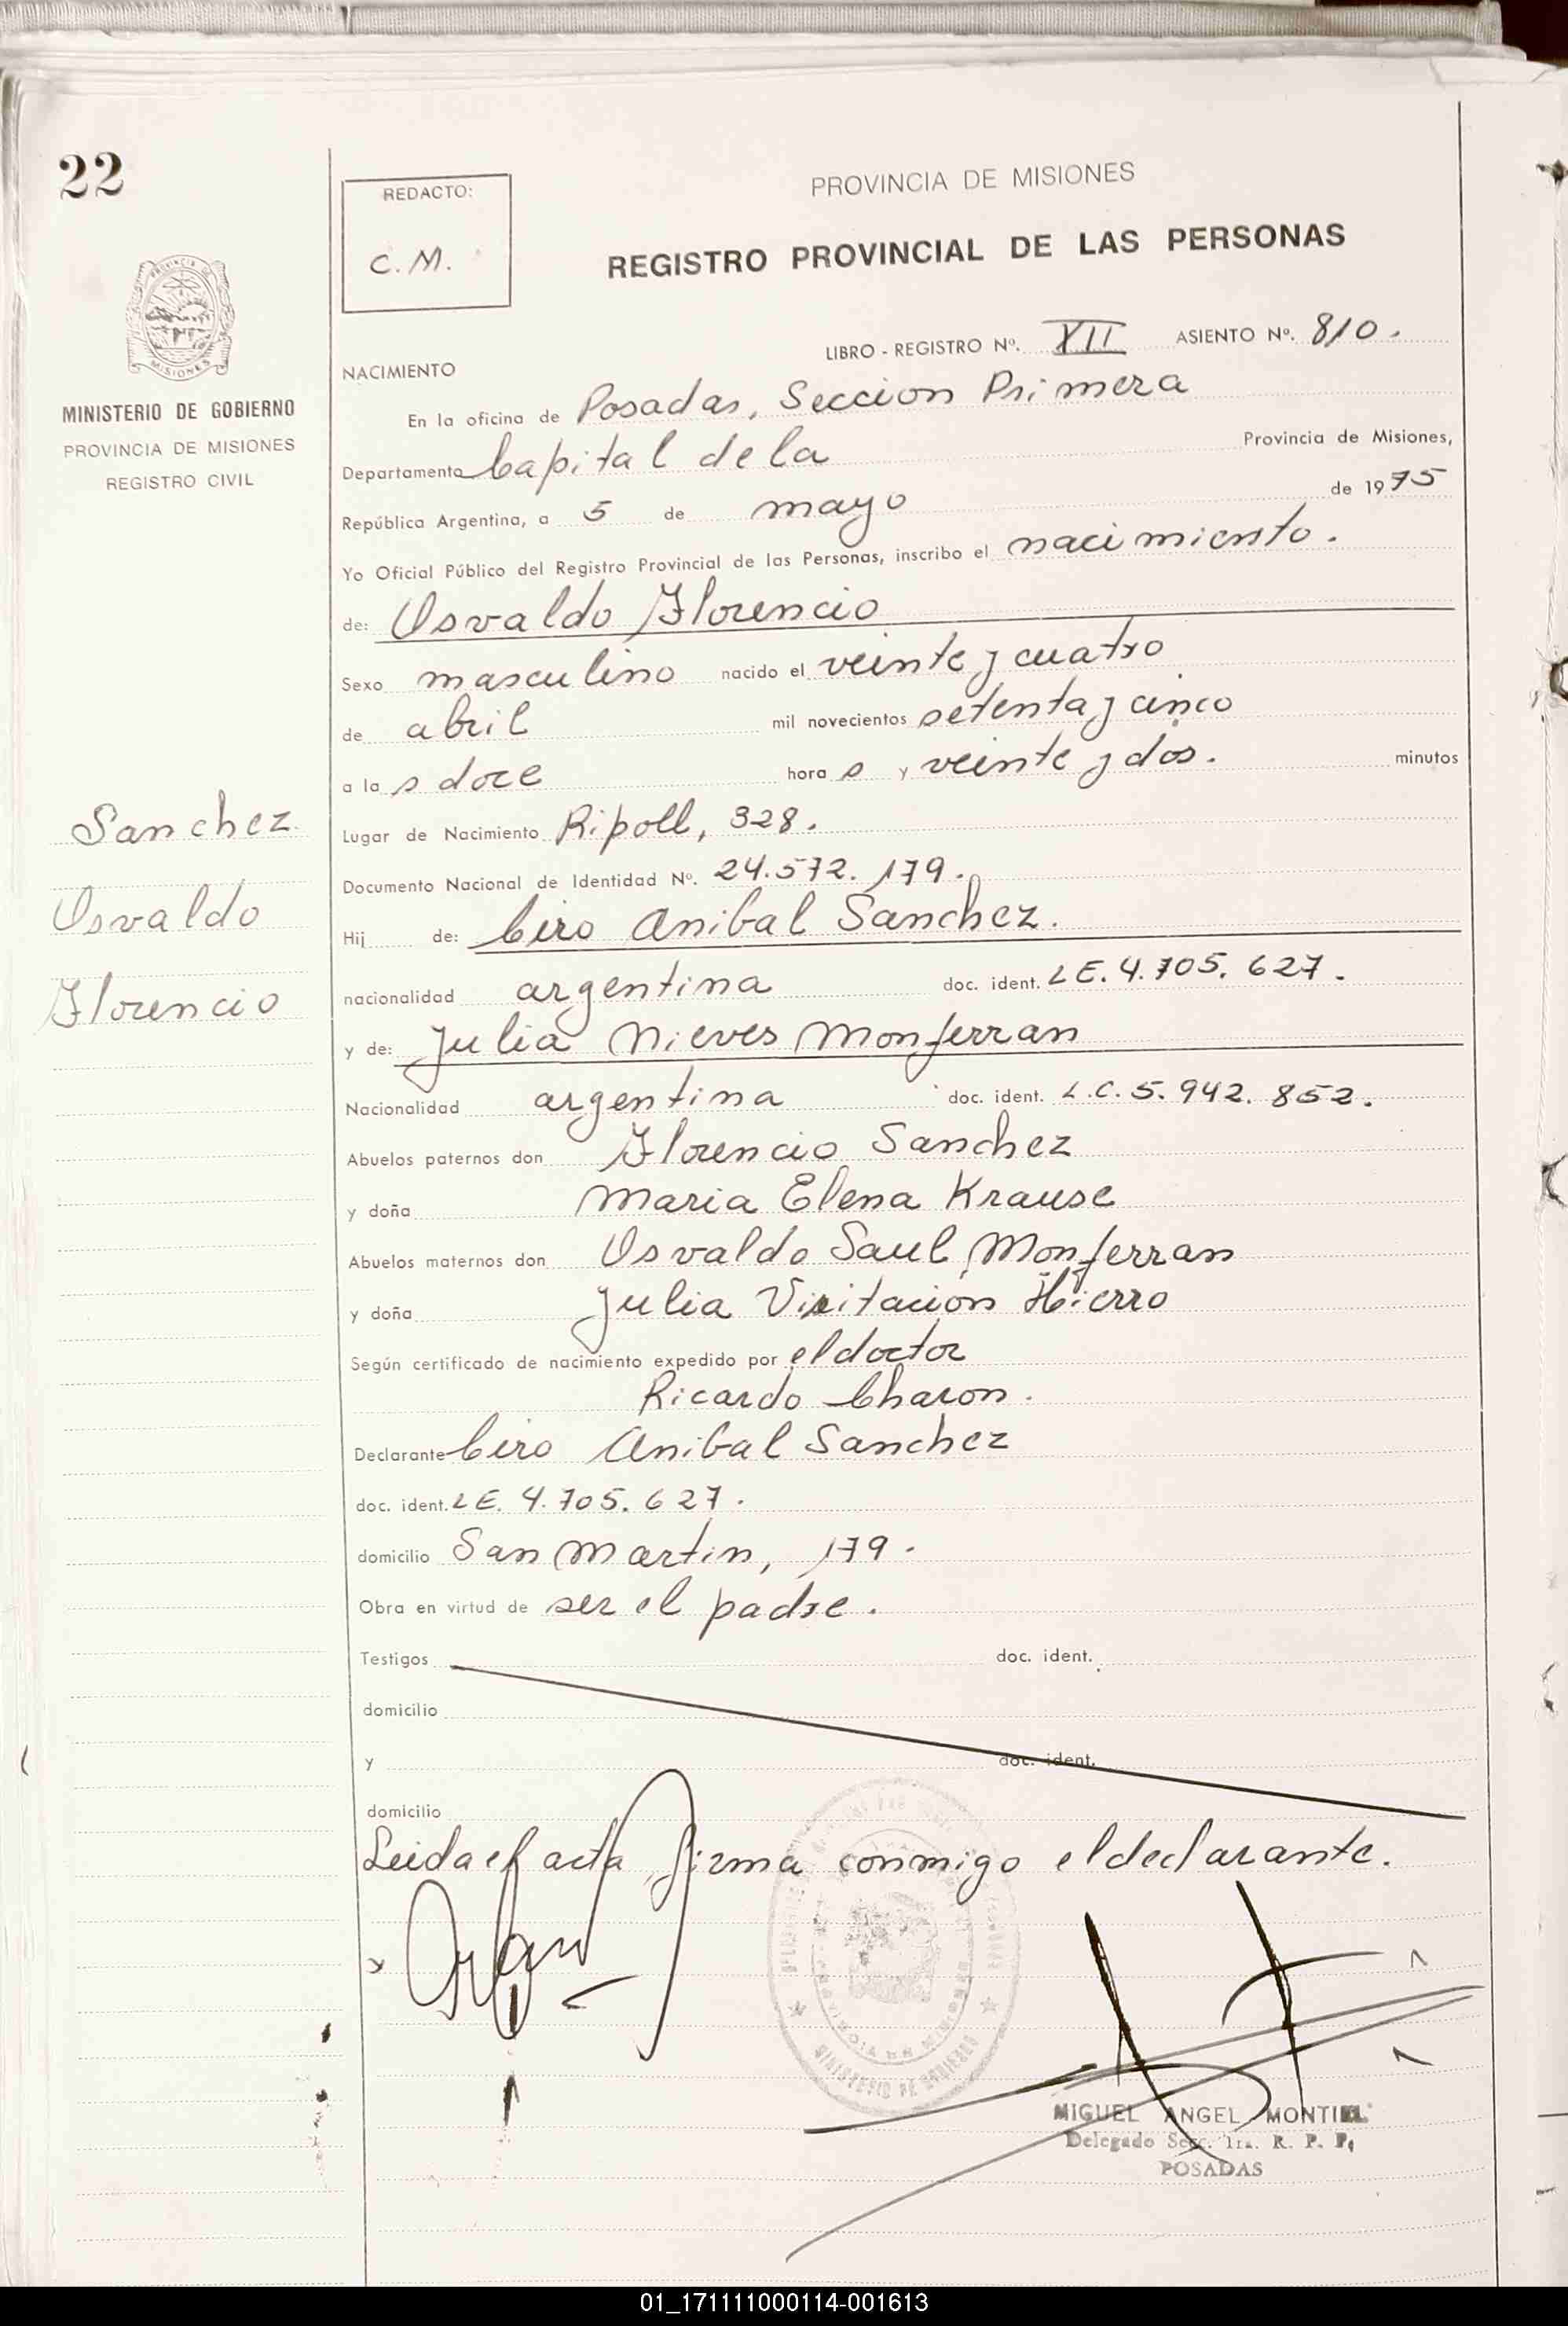 22
REDACTO:
C.M.
PROVINCIA DE MISIONES
REGISTRO PROVINCIAL DE LAS PERSONAS
PROVINCIA DE
MISIONES
MINISTERIO DE GOBIERNO
PROVINCIA DE MISIONES
REGISTRO CIVIL
LIBRO - REGISTRO Nº. XII ASIENTO Nº. 810.
NACIMIENTO
En la oficina de Posadas, Seccion Primera
Departamento Capital de la Provincia de Misiones,
República Argentina, a 5 de mayo de 1975
Yo Oficial Público del Registro Provincial de las Personas, inscribo el nacimiento.
de: Osvaldo Florencio
Sexo masculino nacido el veinte y cuatro
de abril mil novecientos setenta y cinco
a la s doce hora s y veinte y dos. minutos
Lugar de Nacimiento Ripoll, 328.
Documento Nacional de Identidad Nº. 24.572.179.
Hij de: Ciro Anibal Sanchez.
nacionalidad argentina doc. ident. LE. 4.705.627.
y de: Julia Nieves Monferran
Nacionalidad argentina doc. ident. L.C. 5.942.852.
Abuelos paternos don Florencio Sanchez
y doña Maria Elena Krause
Abuelos maternos don Osvaldo Saul Monferran
y doña Julia Visitación Hierro
Según certificado de nacimiento expedido por el doctor
Ricardo Charon.
Declarante Ciro Anibal Sanchez
doc. ident. LE. 4.705.627.
domicilio San Martin, 179.
Obra en virtud de ser el padre.
Testigos doc. ident.
domicilio
y doc. ident.
domicilio
Leida el acta firma conmigo el declarante.
Sanchez
Osvaldo
Florencio
MINISTERIO DE GOBIERNO
MIGUEL ANGEL MONTIEL
Delegado Secc. 1ra. R. P. P.
POSADAS
01_171111000114-001613